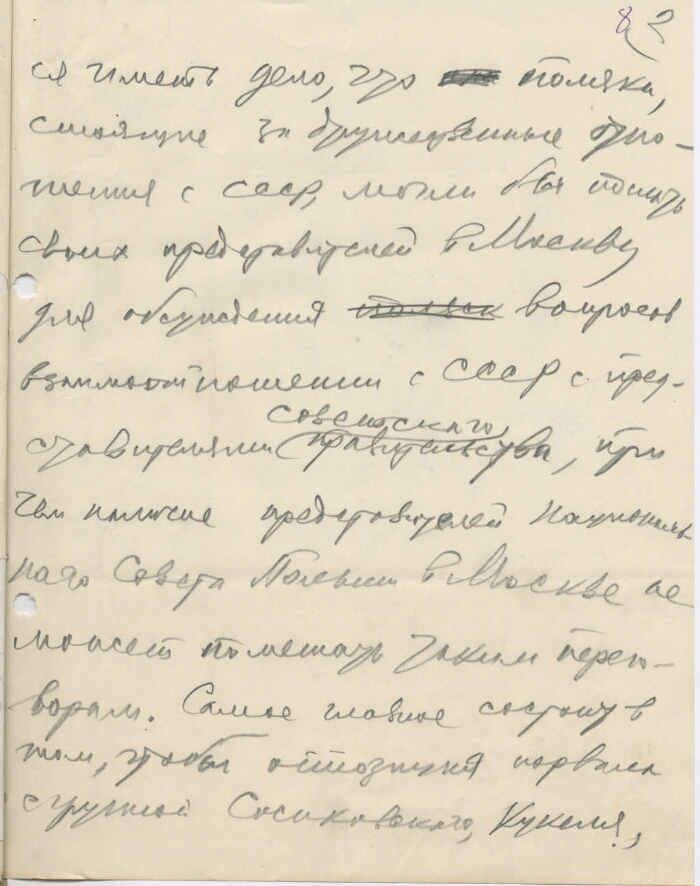 8 2
ся иметь дело, что поляки,
стоящие за дружественные отно-
шения с СССР, могли бы послать
своих представителей в Москву
для обсуждения вопросов
взаимоотношении с СССР с пред-
ставителями советского правительства, при
чем наличие представителей Националь
ного Совета Польши в Москве не
может помешать таким перего-
ворам. Самое главное состоит в
том, чтобы оппозиция порвала
с группой Сосиковского, Кукеля,